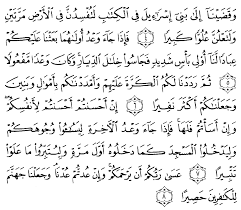 وَقَضَيْنَا إِلَىٰ بَنِي إِسْرَٰٓءِيلَ فِي ٱلْكِتَٰبِ لَتُفْسِدُنَّ فِي ٱلْأَرْضِ مَرَّتَيْنِ
وَلَتَعْلُنَّ عُلُوًّا كَبِيرًا ٤ فَإِذَا جَآءَ وَعْدُ أُولَىٰهُمَا بَعَثْنَا عَلَيْكُمْ
عِبَادًا لَّنَآ أُو۟لِي بَأْسٍ شَدِيدٍ فَجَاسُوا۟ خِلَٰلَ ٱلدِّيَارِ وَكَانَ وَعْدًا مَّفْعُولًا
٥ ثُمَّ رَدَدْنَا لَكُمُ ٱلْكَرَّةَ عَلَيْهِمْ وَأَمْدَدْنَٰكُم بِأَمْوَٰلٍ وَبَنِينَ
وَجَعَلْنَٰكُمْ أَكْثَرَ نَفِيرًا ٦ إِنْ أَحْسَنتُمْ أَحْسَنتُمْ لِأَنفُسِكُمْ
وَإِنْ أَسَأْتُمْ فَلَهَا فَإِذَا جَآءَ وَعْدُ ٱلْءَاخِرَةِ لِيَسُۥٓـُٔوا۟ وُجُوهَكُمْ
وَلِيَدْخُلُوا۟ ٱلْمَسْجِدَ كَمَا دَخَلُوهُ أَوَّلَ مَرَّةٍ وَلِيُتَبِّرُوا۟ مَا عَلَوْا۟
تَتْبِيرًا ٧ عَسَىٰ رَبُّكُمْ أَن يَرْحَمَكُمْ وَإِنْ عُدتُّمْ عُدْنَا وَجَعَلْنَا جَهَنَّمَ
لِلْكَٰفِرِينَ حَصِيرًا ٨